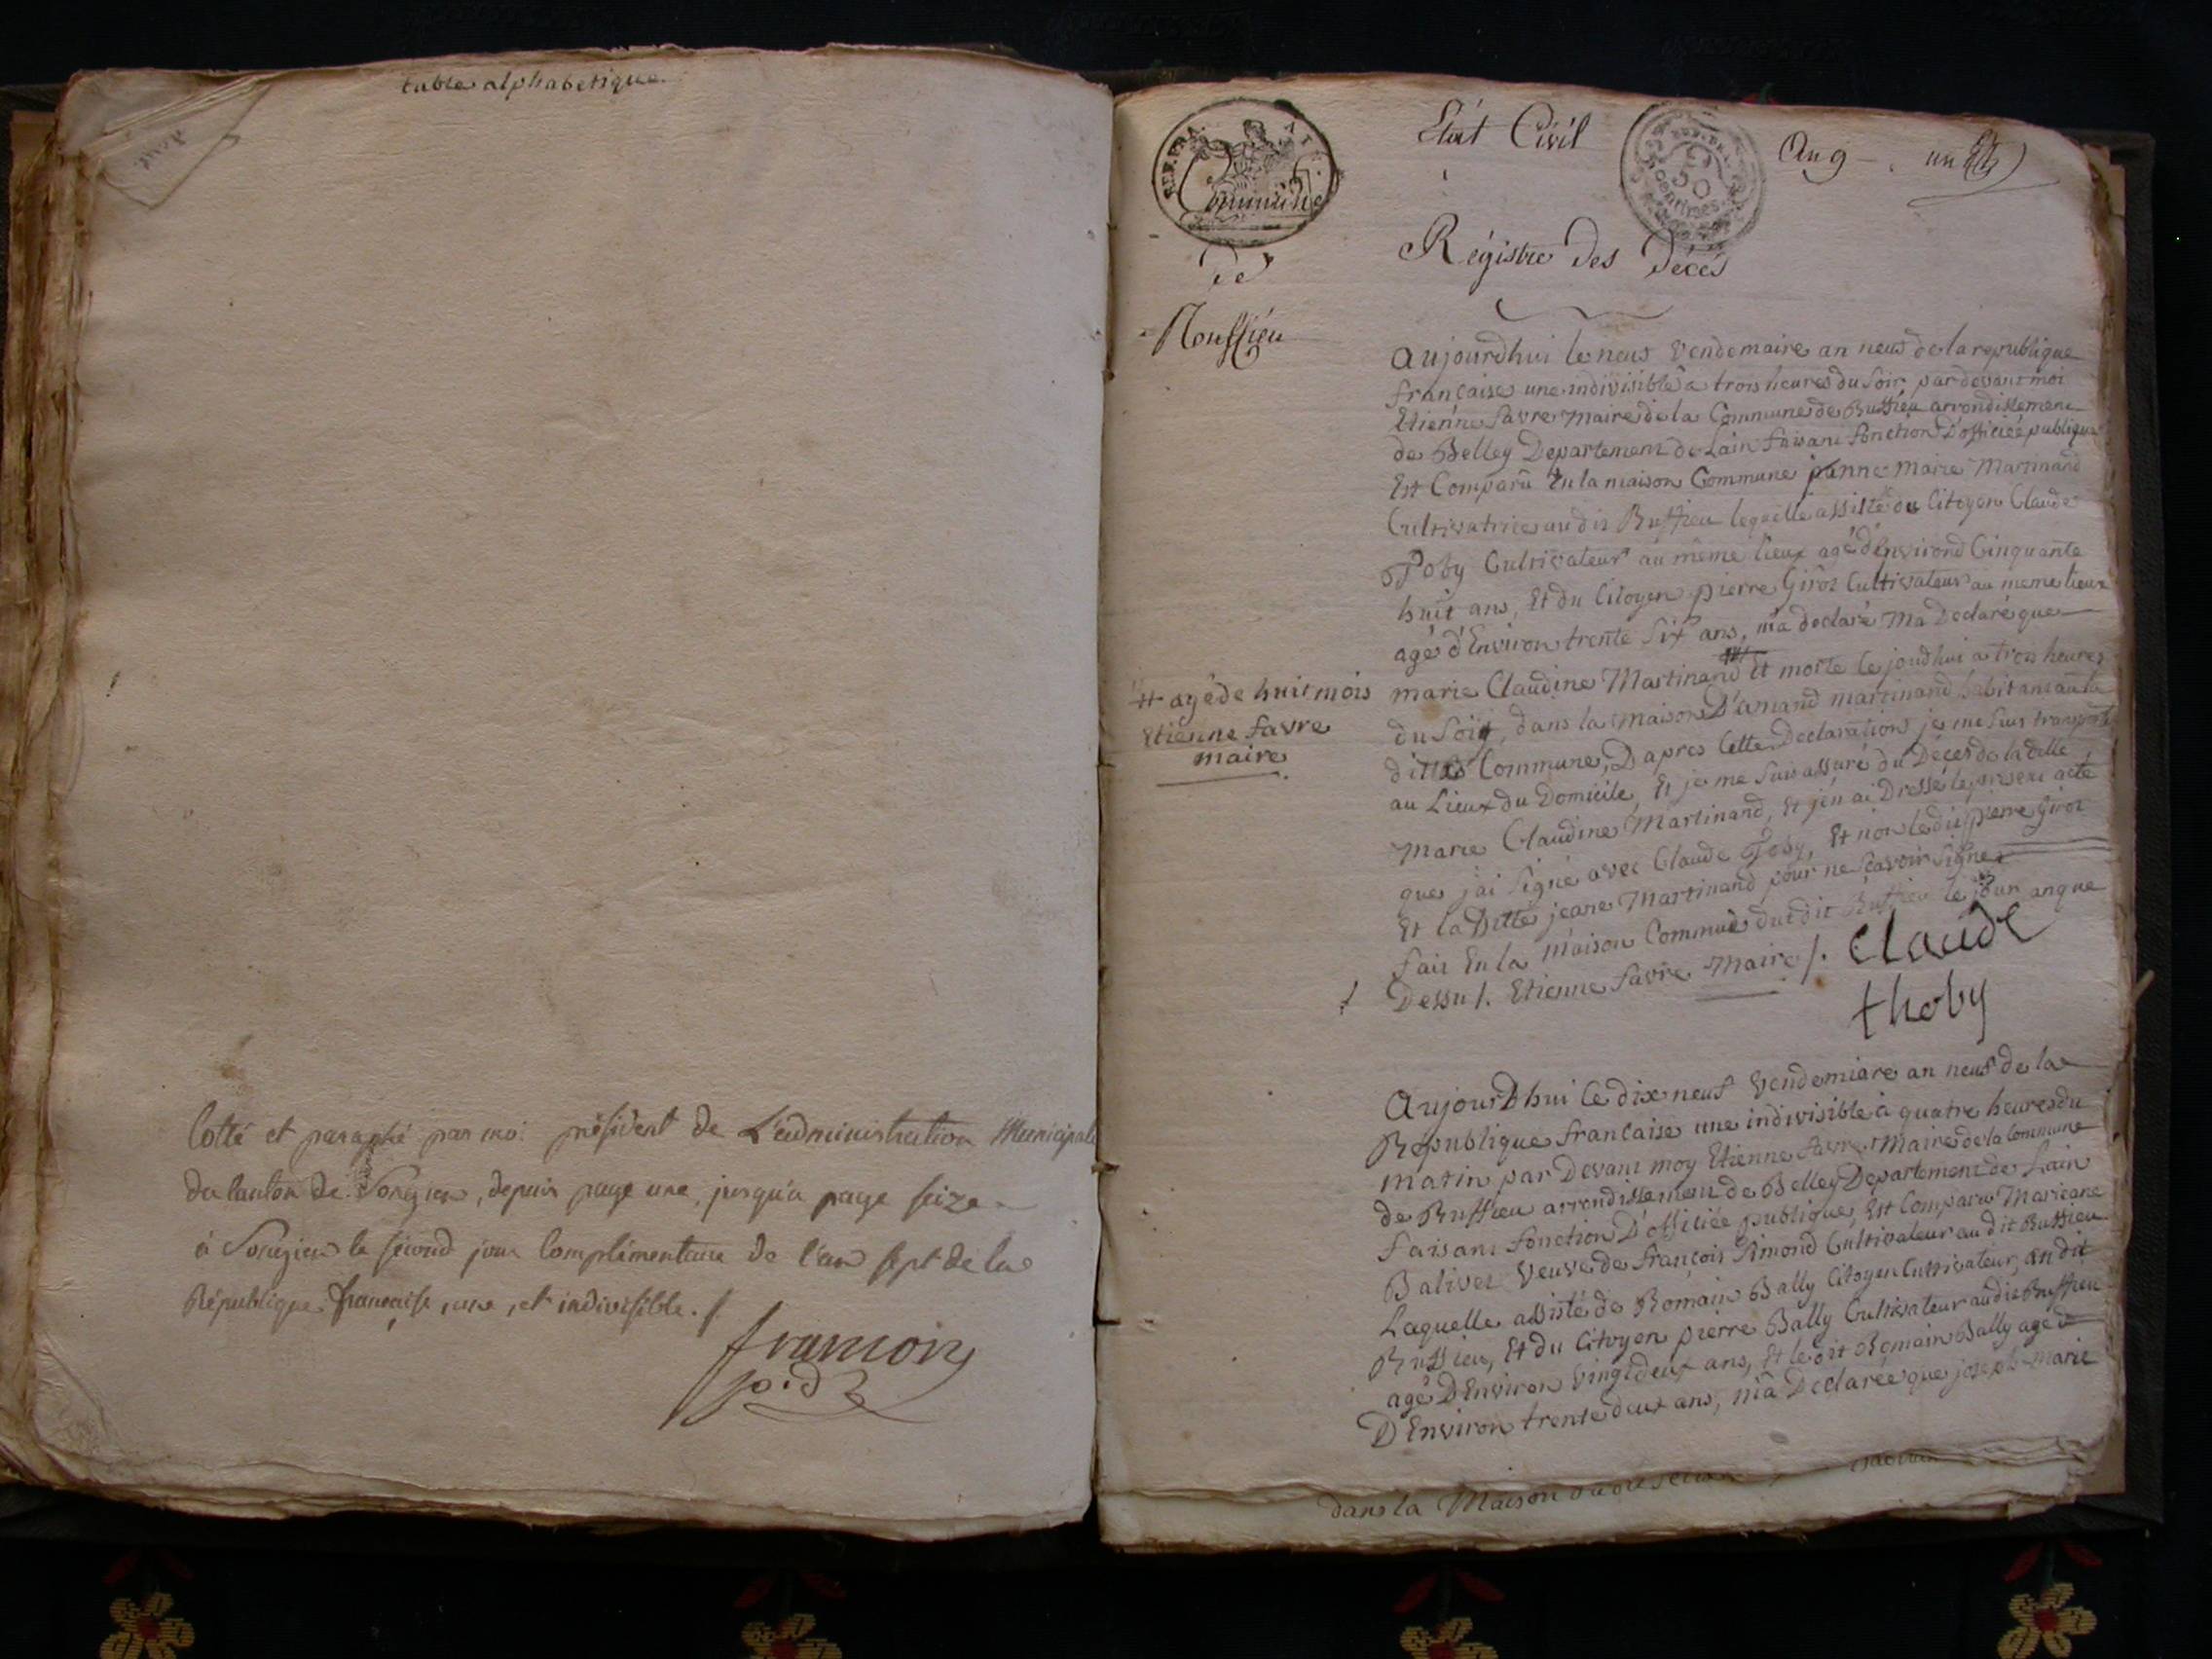 table alphabetique
Cotté et paraphé par moi président de L'administration Municipale
du Canton de Songieu, depuis page une, jusqu'a page seize
à Songieu le second jour Complémentaire de l'an sept de la
République française, une, et indivisible.
francon
p.d
REP. FRA.
Commune
de
Ruffieu
Etat Civil
50
centimes
An 9
un
Régistre des décés
aujourdhui le neuf vendemaire an neuf de la republique
francaise une indivisible a trois heures du soir par devant moi
Etienne favre maire de la Commune de Ruffieu arrondissement
de Belley Departement de Lain faisant fonction D'officiée publique
Est Comparu En la maison Commune janne marie Martinand
Cultivatrice au dit Ruffieu lequelle assisté du Citoyen Claude
Toby Cultivateur au même lieux agé d'Environd Cinquante
huit ans, Et du Citoyen pierre Girot Cultivateur au meme lieux
agé d'Environ trente six ans, m'a declaré ma Declaré que
marie Claudine Martinand et morte le joudhui a trois heures
du soir, dans la maison D'emand martinand habitant au la
ditte Commune, D'apres Cette Declaration je me suis transporté
au Lieux du Domicile, Et je me suis assuré du Déces de la ditte
marie Claudine Martinand, Et j'en ai Dressé le present acte
que j'ai signé avec Claude Toby, Et non le dit pierre Girot
Et la Ditte jeane Martinand pour ne scavoir signer
fait En la maison Commue dudit Ruffieu le jour an que
Dessu /. Etienne favre maire /. Claude
thoby
# agé de huit mois
Etienne favre
maire
AujourDhui le dix neuf vendemiare an neuf de la
Republique francaise une indivisible à quatre heures du
matin par Devant moy Etienne favre maire de la Commune
de Ruffieu arrondissement de Belley Departement de Lain
faisant fonction D'officiée publique, Est Comparu Marieane
Balivet Veuve de françois Simond Cultivateur au dit Ruffieu
Laquelle assisté de Romain Bally Citoyen Cultivateur, au dit
Ruffieu, Et du Citoyen pierre Bally Cultivateur au dit Ruffieu
agé D'Environ vingt deux ans, Et le dit Romain Bally agé
D'Environ trente deux ans, m'a Declarée que joseph marie
dans la Maison